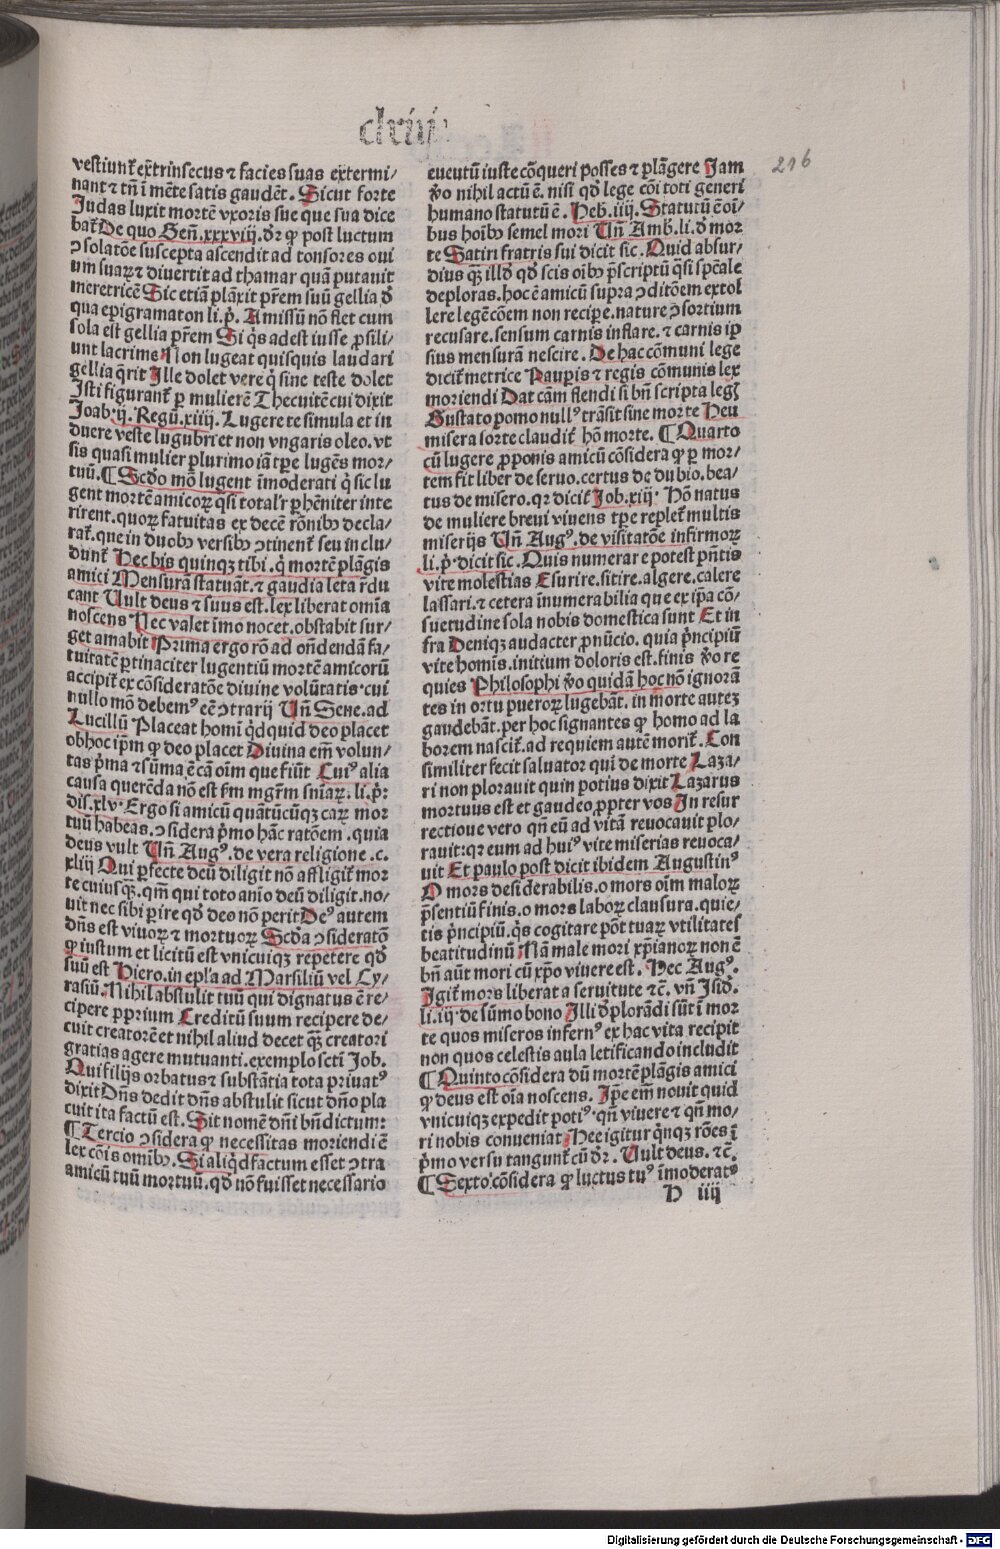 clxiiij
216
vestiunt᷑ ext̃rinsecus ⁊ facies suas extermi/
nant ⁊ tñ ĩ mẽte satis gaudẽt. Sicut forte
Judas luxit mortẽ vxoris sue que sua dice
bat᷑ De quo Geñ.xxxviij.dr̃ ꝙ post luctum
ↄsolatõe suscepta ascendit ad tonsores oui
um suaꝝ ⁊ diuertit ad thamar quã putauit
meretricẽ Sic etiã plãxit pr̃em suũ gellia ď
qua epigramaton li.p̃. Amissũ nõ flet cum
sola est gellia pr̃em Si q̃s adest iusse ꝓsili/
unt lacrime Non lugeat quisquis laudari
gellia q̃rit Ille dolet vere q̃ sine teste dolet
Isti figurant᷑ ꝑ mulierẽ Thecuitẽ cui dixit
Joab.ij. Regũ.xiiij. Lugere te simula et in
duere veste lugubri et non vngaris oleo. vt
sis quasi mulier plurimo iã tꝑe lugẽs mor/
tuũ. ¶ Scďo mõ lugent ĩmoderati q̃ sic lu
gent mortẽ amicoꝝ q̃si total'r ꝑhẽniter inte
rirent. quoꝝ fatuitas ex decẽ rõnibꝯ decla/
rat᷑. que in duobꝯ versibꝯ ↄtinent᷑ seu inclu/
dunt᷑ Hec bis quinqꝫ tibi. q̃ mortẽ plãgis
amici Mensurã statuãt. ⁊ gaudia leta r̃du
cant Uult deus ⁊ suus est. lex liberat omĩa
noscens Nec valet ĩmo nocet. obstabit sur/
get amabit Prima ergo rõ ad oñdendã fa/
tuitatẽ ꝑtinaciter lugentiũ mortẽ amicorũ
accipit᷑ ex cõsideratõe diuine volũtatis. cui
nullo mõ debemꝰ eẽ ↄtrarij Uñ Sene. ad
Lucillũ Placeat homi q̃dquid deo placet
ob hoc ip̃m ꝙ deo placet Diuina em̃ volun/
tas p̃ma ⁊ sũma ẽ cã oĩm que fiũt Cuiꝰ alia
causa querẽda nõ est fm mgr̃m sniaꝝ. li.p̃:
dis.xlv. Ergo si amicũ quãtũcũqꝫ caꝝ mor
tuũ habeas. ↄsidera p̃mo hãc ratõem. quia
deus vult Uñ Augꝰ. de vera religione .c.
xlij Qui ꝑfecte deũ diligit nõ affligit᷑ mor
te cuiusqꝫ. qm̃ qui toto anĩo deũ diligit. no/
uit nec sibi ꝑire qď deo nõ perit Deꝰ autem
dñs est viuoꝝ ⁊ mortuoꝝ Scďa ↄsideratõ
ꝙ iustum et licitũ est vnicuiqꝫ repetere qď
suũ est Hiero. in epl'a ad Marsiliũ vel Ey/
rasiũ. Nihil abstulit tuũ qui dignatus ẽ re/
cipere ꝓprium Creditũ suum recipere de/
cuit creatorẽ et nihil aliud decet qꝫ̃ creatori
gratias agere mutuanti. exemplo sctĩ Job.
Qui filijs orbatus ⁊ substãtia tota priuatꝰ
dixit Dñs dedit dñs abstulit sicut dño pla
cuit ita factũ est. Sit nomẽ dñi bñdictum:
¶ Tercio ↄsidera ꝙ necessitas moriendi ẽ
lex cõis omĩbꝯ. Si aliq̃d factum esset ↄtra
amicũ tuũ mortuũ. qď nõ fuisset necessario
euentũ iuste cõqueri posses ⁊ plãgere Jam
ṽo nihil actũ ẽ. nisi qď lege cõi toti generi
humano statutũ ẽ. Heb.iiij. Statutũ ẽ oĩ/
bus hoĩbꝯ semel mori Uñ Amb. li. ď mor
te Satiri fratris sui dicit sic. Quid absur/
dius qꝫ̃ illď qď scis oĩbꝯ p̃scriptũ q̃si sp̃eale
deploras. hoc ẽ amicũ supra ↄditõem extol
lere legẽ cõem non recipe. nature ↄsortium
recusare. sensum carnis inflare. ⁊ carnis ip̃
sius mensurã nescire. De hac cõmuni lege
dicit᷑ metrice Pauꝑis ⁊ regis cõmunis lex
moriendi Dat cãm flendi si bñ scripta legꝫ
Gustato pomo nullꝰ trãsit sine morte Heu
misera sorte claudit᷑ hõ morte. ¶ Quarto
cũ lugere ꝓponis amicũ cõsidera ꝙ ꝑ mor/
tem fit liber de seruo. certus de dubio. bea/
tus de misero. qꝛ dicit᷑ Job.xiij. Hõ natus
de muliere breui viuens tꝑe replet᷑ multis
miserijs Uñ Augꝰ. de visitatõe infirmoꝝ
li.p̃. dicit sic. Quis numerare potest p̃ntis
vite molestias Esurire. sitire. algere. calere
lassari. ⁊ cetera ĩnumerabilia que ex ip̃a cõ/
suetudine sola nobis domestica sunt Et in
fra Deniqꝫ audacter ꝓnũcio. quia p̃ncipiũ
vite homĩs. initium doloris est. finis ṽo re
quies Philosophi ṽo quidã hoc nõ ignorã
tes in ortu pueroꝝ lugebãt. in morte autẽ
gaudebãt. per hoc signantes ꝙ homo ad la
borem nascit᷑. ad requiem autẽ morit᷑. Con
similiter fecit saluator qui de morte Laza/
ri non plorauit quin potius dixit Lazarus
mortuus est et gaudeo ꝓpter vos In resur
rectione vero qñ eũ ad vitã reuocauit plo/
rauit: qꝛ eum ad huiꝰ vite miserias reuoca/
uit Et paulo post dicit ibidem Augustinꝰ
O mors desiderabilis. o mors oĩm maloꝝ
p̃sentiũ finis. o mors laboꝝ clausura. quie/
tis p̃ncipiũ. q̃s cogitare põt tuaꝝ vtilitates
beatitudinũ Nã male mori xp̃ianoꝝ non ẽ
bñ aũt mori cũ xp̃o viuere est. Hec Augꝰ.
Igit᷑ mors liberat a seruitute ⁊c̃. vñ Isiď.
li.iij. de sũmo bono Illi ďplorãdi sũt ĩ mor
te quos miseros infernꝰ ex hac vita recipit
non quos celestis aula letificando includit
¶ Quinto cõsidera dũ mortẽ plãgis amici
ꝙ deus est oĩa noscens. Ip̃e em̃ nouit quid
vnicuiqꝫ expedit potiꝰ. qñ viuere ⁊ qñ mo/
ri nobis conueniat Hec igitur q̃nqꝫ rões ĩ
p̃mo versu tangunt᷑ cũ dr̃. Uult deus. ⁊c̃.
¶ Sexto cõsidera ꝙ luctus tuꝰ ĩmoderatꝰ
H iiij
Digitalisierung gefördert durch die Deutsche Forschungsgemeinschaft - DFG